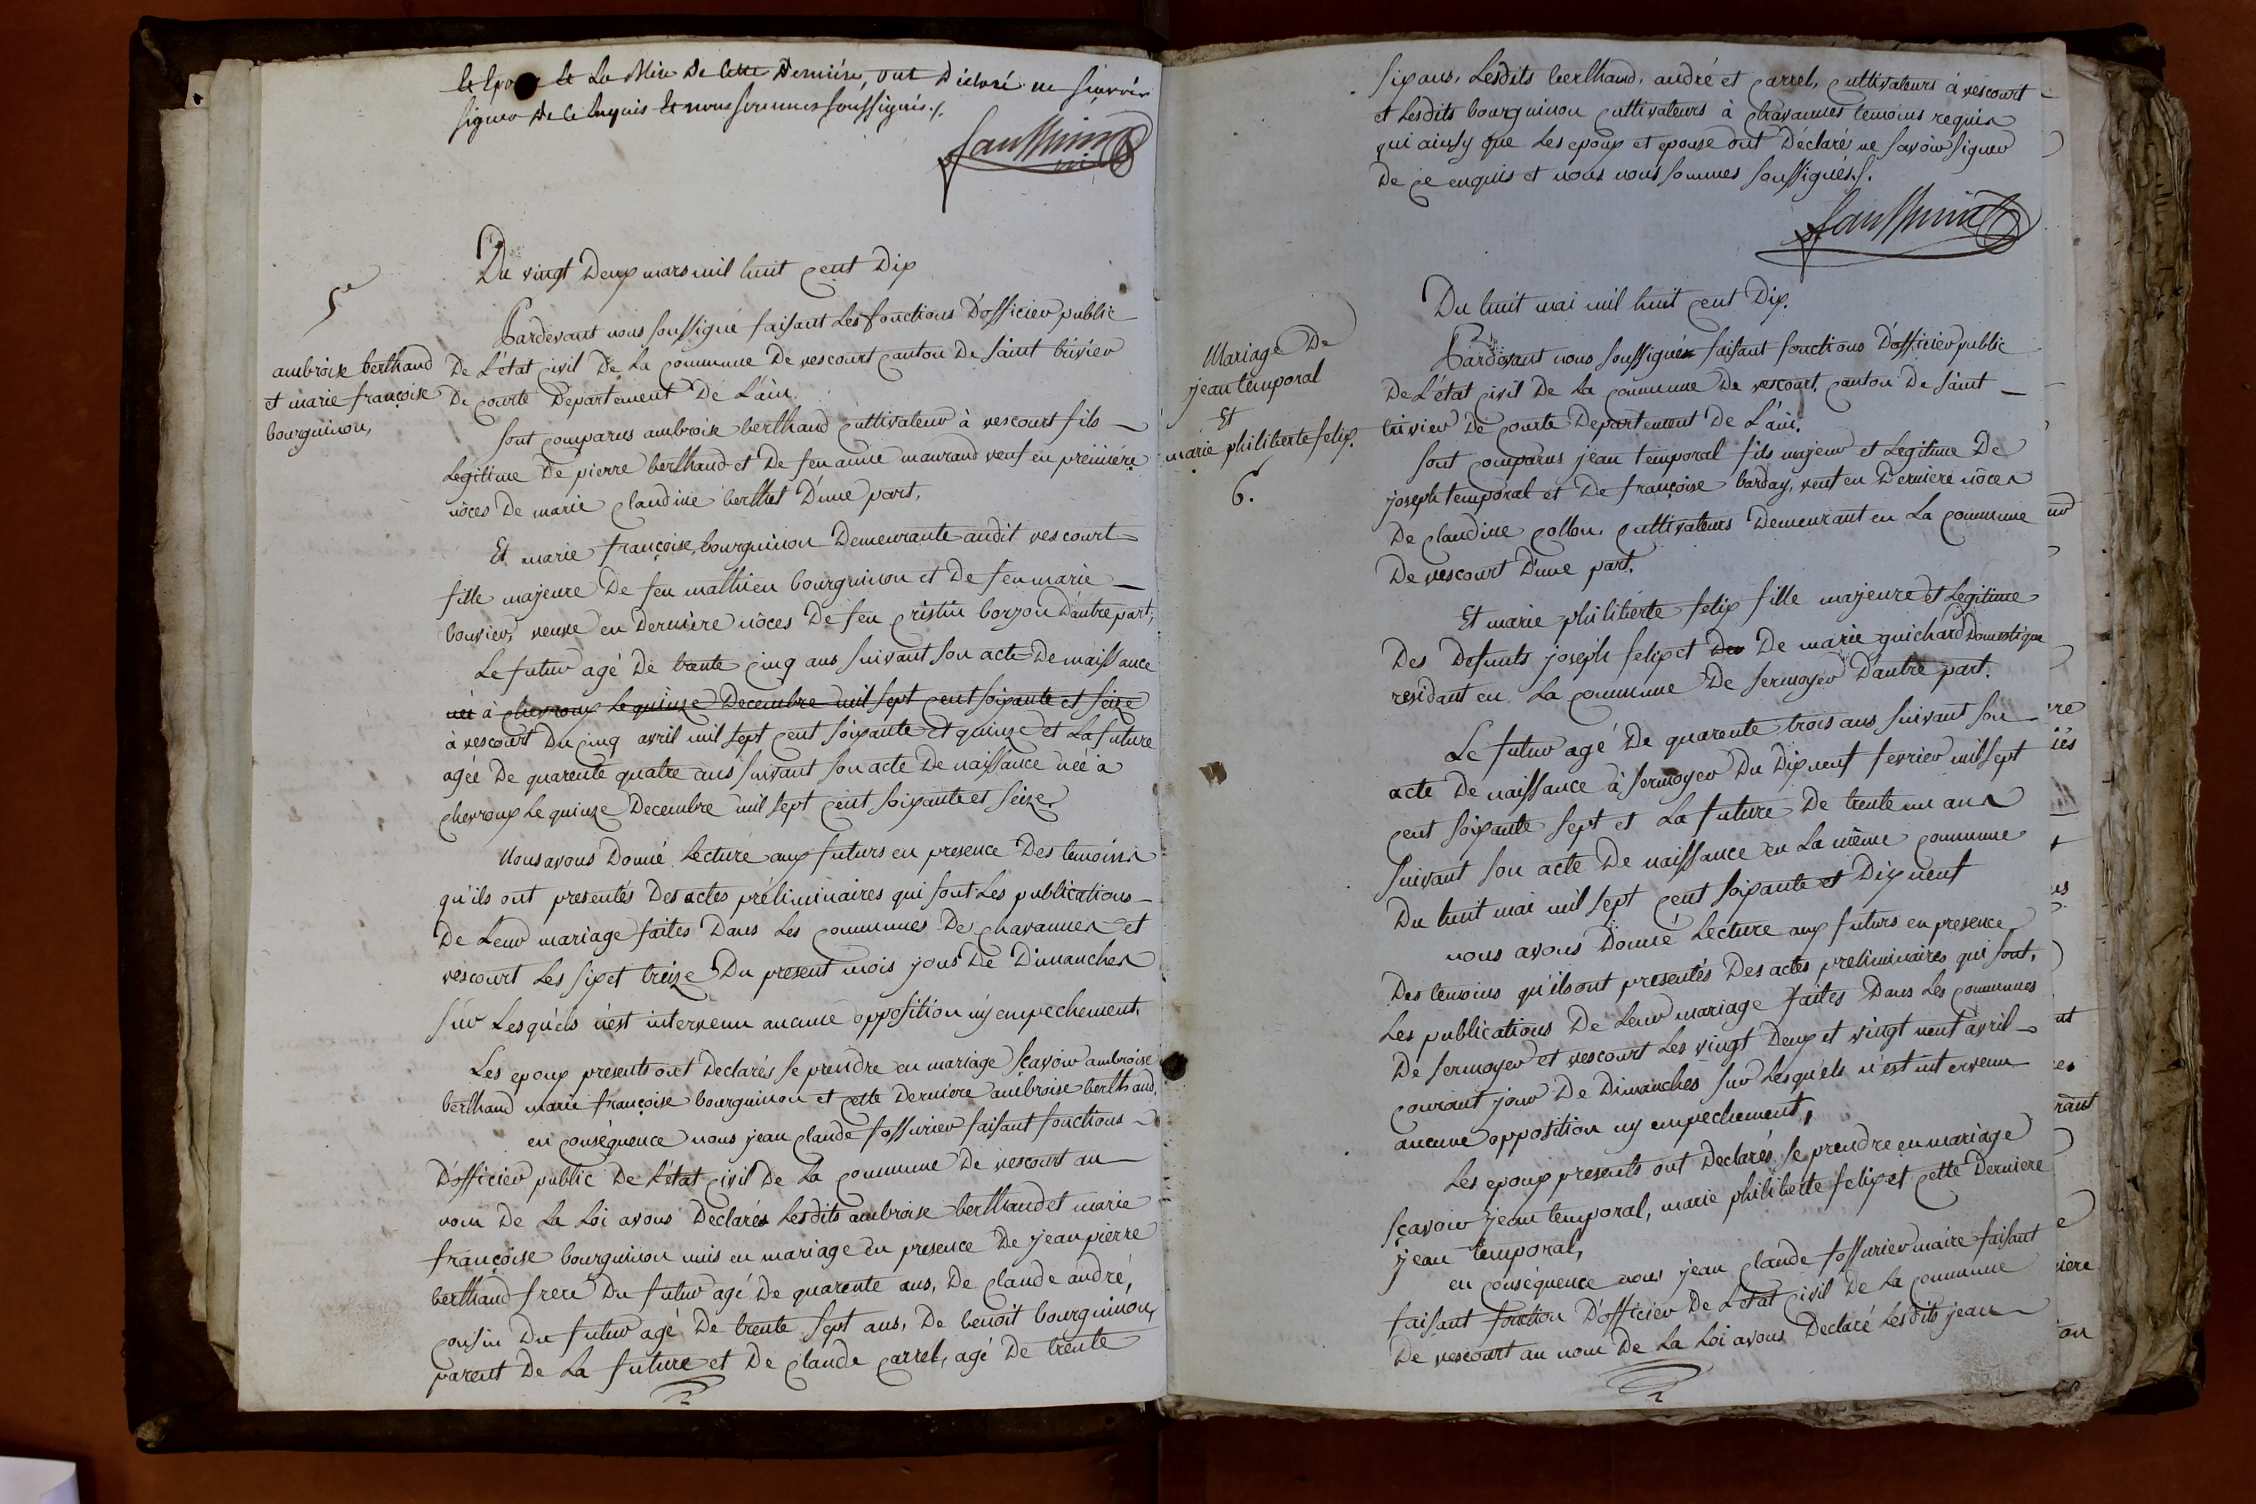 et la Mere de cette derniére, ont déclaré ne scavoir
signer de ce enquis et nous sommes soussignés./.
Du vingt deux mars mil huit cent dix
5e
ambroise berthand
et marie françoise
bourguinon,
Pardevant nous soussigné faisant les fonctions d'officier public
De L'état civil De La commune De vescourt canton De saint trivier
De courte Departement De L'ain.
sont comparus ambroise berthand cultivateur à vescourt fils
Legitime De pierre berthand et De feu anne maurand veuf en première
nôces De marie claudine berthet D'une part,
Et marie françoise bourguinon Demeurante audit vescourt
fille majeure De feu mathieu bourguinon et De feu marie
bouvier, veuve en Derniere nôces De feu cristin borzon D'autre part,
Le futur agé De trente cinq ans suivant son acte De naissance
née à chevroux Le quinze Decembre mil sept cent soixante et seize
à vescourt Du cinq avril mil sept cent soixante et quinze et La future
agée De quarente quatre ans suivant son acte De naissance née à
chevroux Le quinze Decembre mil sept cent soixante et seize.
Nous avons Donné Lecture aux futurs en presence Des temoins
qu'ils ont presentés Des actes préliminaires qui sont Les publications
De Leur mariage faites Dans Les communes De chavannes et
vescourt Les six et treize Du present mois jous De Dimanches
sur Lesquels n'est intervenu aucune opposition ny empechement.
Les epoux presents ont Declarés se prendre en mariage sçavoir ambroise
berthand marie françoise bourguinon et cette Derniere ambroise berthand,
en conséquence nous jean claude fossurier faisant fonctions
D'officier public De L'état civil De La commune De vescourt au
nom De La Loi avons Declarés Lesdits ambroise berthand et marie
françoise bourguinon unis en mariage en presence De jean pierre
berthand frere Du futur agé De quarente ans, De claude andré,
cousin Du futur agé De trente sept ans, De benoit bourguinon,
parent De La future et De claude carrel, agé De trente
six ans, Lesdits berthand, andré et carrel, cultivateurs à vescourt
et Lesdits bourguinon cultivateurs à chavannes temoins requis
qui ainsy que Les epoux et epouse ont Déclaré ne savoir signer
De ce enquis et nous nous sommes soussignés./.
Du huit mai mil huit cent Dix.
Mariage De
jean temporal
Et
marie philiberte felix.
6.
Pardevant nous soussignés faisant fonctions D'officier public
De L'état civil De La commune De vescourt, canton De saint
trivier De courte Departement De L'ain.
sont comparus jean temporal fils majeur et Legitime De
joseph temporal et De françoise barday, veuf en Derniere nôces
De claudine collon, cultivateurs Demeurant en La commune
De vescourt D'une part.
Et marie philiberte felix fille majeure et Legitime
Des Defunts joseph felix et De marie guichard Domestique
residant en La commune De sermoyer D'autre part.
Le futur agé De quarente trois ans suivant son
acte De naissance à sermoyer Du Dix neuf fevrier mil sept
cent soixante sept et La future De trente un ans
suivant son acte De naissance en La même commune
Du huit mai mil sept cent soixante et Dix neuf
nous avons Donné Lecture aux futurs en presence
Des temoins qu'ils ont presentés Des actes preliminaires qui sont,
Les publications De Leur mariage faites Dans Les communes
De sermoyer et vescourt Les vingt Deux et vingt neuf avril
courant jour De Dimanches sur Lesquels n'est intervenu
aucune opposition ny empechement,
Les epoux presents ont Declarés se prendre en mariage
sçavoir jean temporal, marie philiberte felix et cette Derniere
jean temporal,
en conséquence nous jean claude fossurier maire faisant
faisant fonction D'officier De L'état civil De La commune
De vescourt au nom De La Loi avons Declaré Lesdits jean